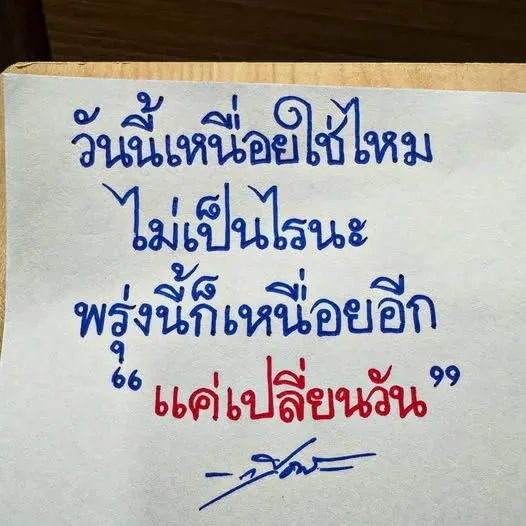 วันนี้เหนื่อยใช่ไหม
ไม่เป็นไรนะ
พรุ่งนี้ก็เหนื่อยอีก
“แค่เปลี่ยนวัน”